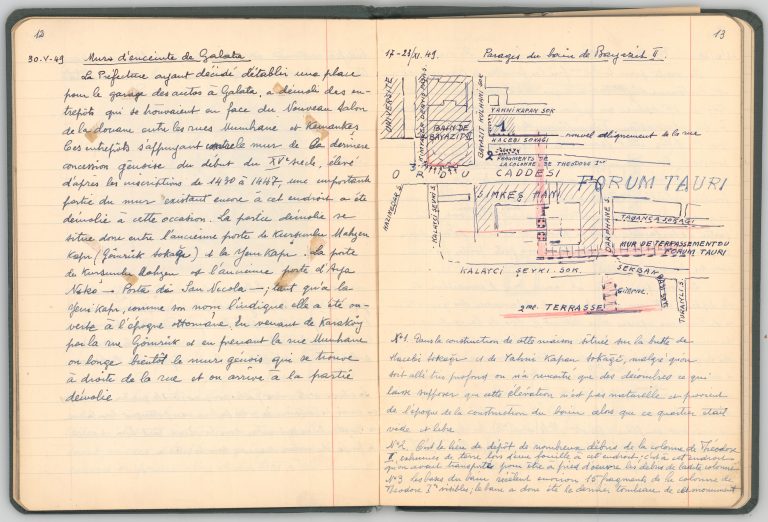 12
30-V-49 Murs d'enceinte de Galata
La Préfecture ayant décidé d'établir une place
pour le garage des autos à Galata, a démoli des en-
trepôts qui se trouvaient en face du Nouveau Salon
de la douane entre les rues Mumhane et Kemankes.
Ces entrepôts s'appuyant contre le mur de la dernière
concession génoise du début du XVe siècle, élevé
d'après les inscriptions de 1430 à 1447, une importante
partie du mur existant encore à cet endroit a été
démolie à cette occasion. La partie démolie se
situe donc entre l'ancienne porte de Kursunlu Mahzen
Kapı (Gömrük sokağı) et la Yeni Kapı. La porte
de Kursunlu Mahzen est l'ancienne porte d'Aya
Niko - Porta di San Nicola -; tant qu'à la
Yeni Kapı, comme son nom l'indique elle a été ou-
verte à l'époque ottomane. En venant de Karaköy
par la rue Gömrük et en prenant la rue Mumhane
on longe bientôt le mur génois qui se trouve
à droite de la rue et on arrive à la partie
démolie
13
17-23/XI.49. Parages du bain de Bayazit II.
UNIVERSITE
BAIN DE
BAYAZIT II
BAYAZIT KULHANI SOK
YAHNI KAPAN SOK
1
HACEBI SOKAGI
nouvel alignement de la rue
2
FRAGMENTS DE
LA COLONNE DE THEODOSE Ier
3
O R D U CADDESI
FORUM TAURI
SIMKEŞ HANI
DARPHANE S.
TABANCA SOKAGI
MUR DE TERRASSEMENT DU
FORUM TAURI
KALAYCI ŞEVKI SOK.
SEKBAN
Citerne
TURANLI S.
2me TERRASSE
No 1. Dans la construction de cette maison située sur la butte de
Hacebi sokağı et de Yahni Kapan sokağı, malgré qu'on
soit allé très profond on n'a rencontré que des décombres ce qui
laisse supposer que cette élévation n'est pas naturelle et provient
de l'époque de la construction du bain alors que ce quartier était
vide et libre
No 2. C'est le lieu de dépôt de nombreux débris de la colonne de Théodose
Ier, exhumés de terre lors d'une fouille à cet endroit; c'est à cet endroit
qu'on avait transporté pour être à pied d'oeuvre les débris de ladite colonne
No 3 les bases du bain recèlent environ 15 fragments de la colonne de
Théodose Ier visibles; le bain a donc été le dernier tombeau de ce monument